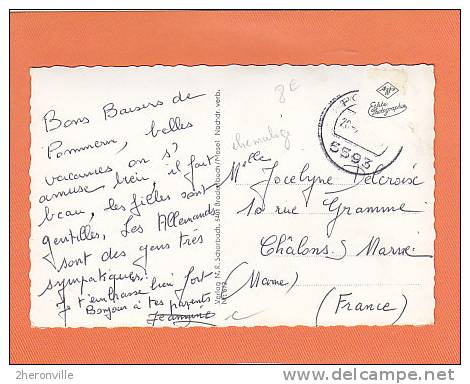 Bons Baisers de
Pommern, belles
vacances on s'
amuse bien, il fait
beau, les filles sont
gentilles, Les Allemands
sont des gens très
sympatiques.
Je t'embrasse bien fort
Bonjour à tes parents
Jeannine
Verlag N.R. Schurbach, 5481 /Mosel Nachdr. verb.
Agfa
Echte
Photographie
5593
Melle
Jocelyne Delcroix
10 rue Gramme
Châlons. s/ Marne
(Marne)
(France)
2heronville
delcampe.net